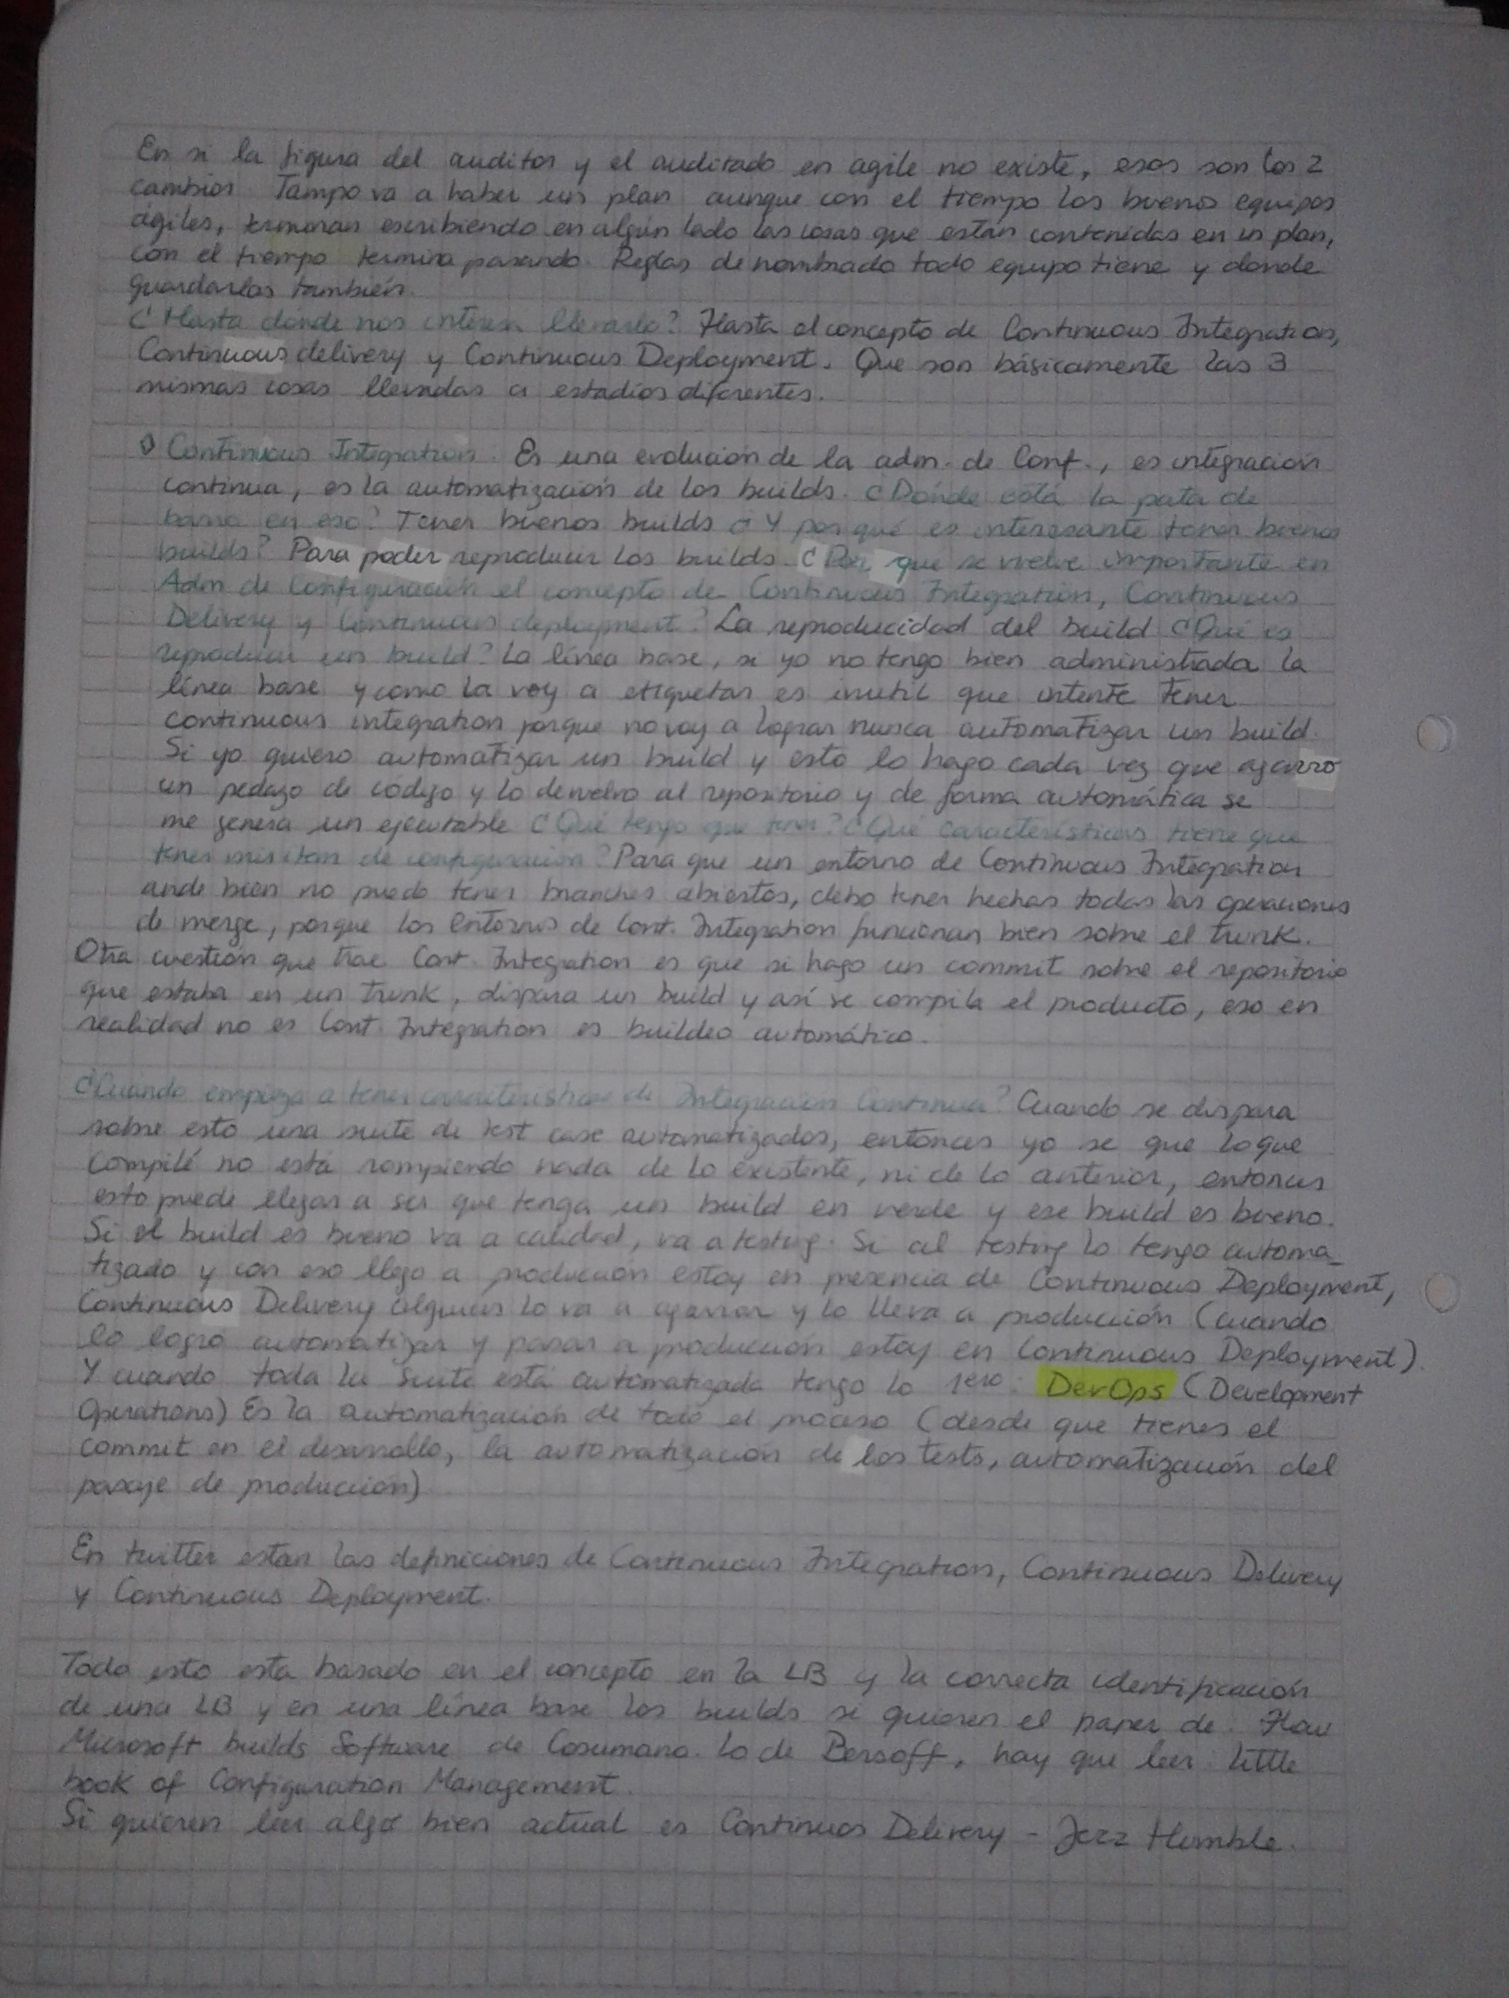 En si la figura del auditor y el auditado en agile no existe, esos son los 2
cambios. Tampo va a haber un plan aunque con el tiempo los buenos equipos
ágiles, terminan escribiendo en algún lado las cosas que están contenidas en un plan,
con el tiempo termina pasando. Reglas de nombrado todo equipo tiene y donde
guardarlas también.
¿Hasta dónde nos interesa llevarlo? Hasta el concepto de Continuous Integration,
Continuous delivery y Continuous Deployment. Que son básicamente las 3
mismas cosas llevadas a estadios diferentes.
Continuous Integration. Es una evolución de la adm. de Conf., es integración
continua, es la automatización de los builds. ¿Dónde está la pata de
barro en eso? Tener buenos builds ¿Y por qué es interesante tener buenos
builds? Para poder reproducir los builds. ¿Por que se vuelve importante en
Adm de Configuración el concepto de Continuous Integration, Continuous
Delivery y Continuous deployment? La reproducidad del build ¿Qué es
reproducir un build? La línea base, si yo no tengo bien administrada la
línea base y como la voy a etiquetar es inutil que intente tener
continuous integration porque no voy a lograr nunca automatizar un build.
Si yo quiero automatizar un build y esto lo hago cada vez que agarro
un pedazo de código y lo devuelvo al repositorio y de forma automática se
me genera un ejecutable ¿Qué tengo que tener? ¿Qué características tiene que
tener mis item de configuración? Para que un entorno de Continuous Integration
ande bien no puedo tener branches abiertos, debo tener hechas todas las operaciones
de merge, porque los entornos de Cont. Integration funcionan bien sobre el trunk.
Otra cuestión que trae Cont. Integration es que si hago un commit sobre el repositorio
que estaba en un trunk, dispara un build y así se compila el producto, eso en
realidad no es Cont. Integration es buildeo automático.
¿Cuándo empieza a tener características de Integración Continua? Cuando se dispara
sobre esto una suite de test case automatizados, entonces yo se que lo que
compilé no está rompiendo nada de lo existente, ni de lo anterior, entonces
esto puede llegar a ser que tenga un build en verde y ese build es bueno.
Si el build es bueno va a calidad, va a testing. Si al testing lo tengo automa_
tizado y con eso llego a producción estoy en presencia de Continuous Deployment,
Continuous Delivery alguien lo va a agarrar y lo lleva a producción (cuando
lo logró automatizar y pasar a producción estoy en Continuous Deployment).
Y cuando toda la suite está automatizada tengo lo 1ero: DevOps (Development
Operations) Es la automatización de todo el proceso (desde que tienes el
commit en el desarrollo, la automatización de los tests, automatización del
pasaje de produccion)
En twitter estan las definiciones de Continuous Integration, Continuous Delivery
y Continuous Deployment.
Todo esto esta basado en el concepto en la LB y la correcta identificación
de una LB y en una línea base los builds si quieren el paper de: How
Microsoft builds Software de Cosumano. Lo de Bersoff, hay que leer: little
book of Configuration Management.
Si quieren leer algo bien actual es Continuos Delivery - Jezz Humble.